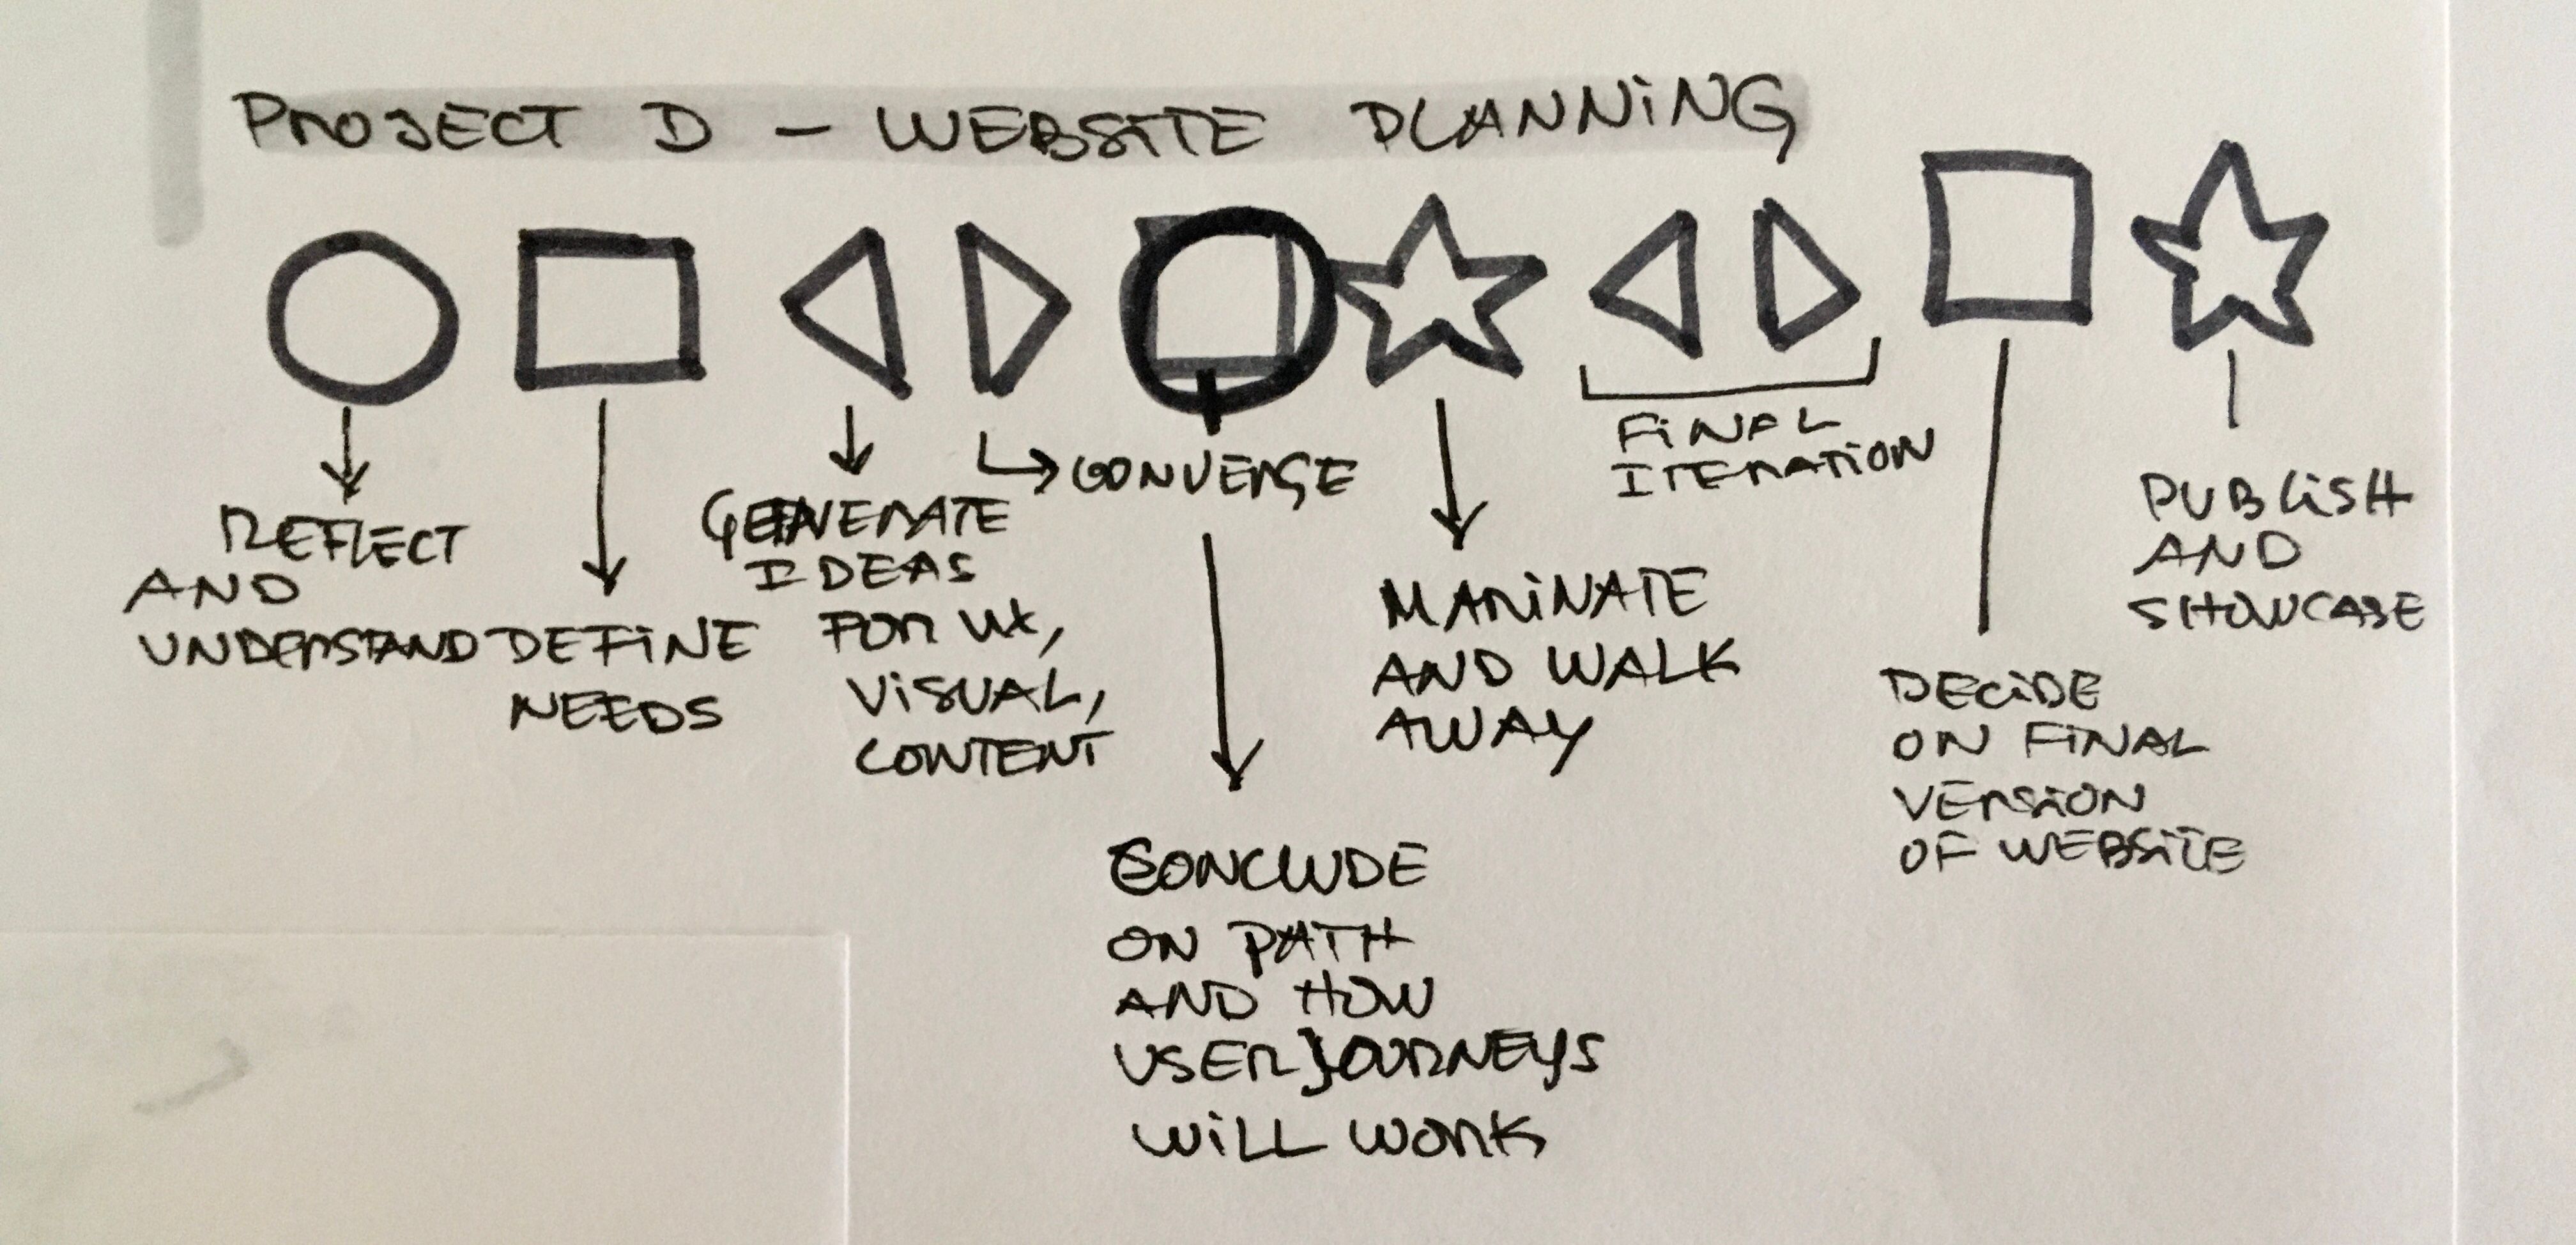 PROJECT D - WEBSITE PLANNING
REFLECT
AND
UNDERSTAND
DEFINE
NEEDS
GENERATE
IDEAS
FOR UX,
VISUAL,
CONTENT
CONVERGE
CONCLUDE
ON PATH
AND HOW
USER JOURNEYS
WILL WORK
MARINATE
AND WALK
AWAY
FINAL
ITERATION
DECIDE
ON FINAL
VERSION
OF WEBSITE
PUBLISH
AND
SHOWCASE